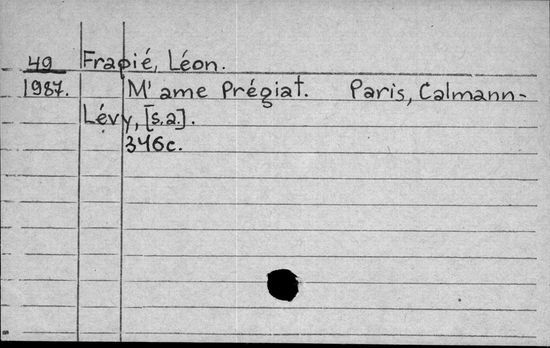 49 Frapié, Léon.
1987. M' ame Prégiat. Paris, Calmann-
Lévy, [s.a.].
346c.